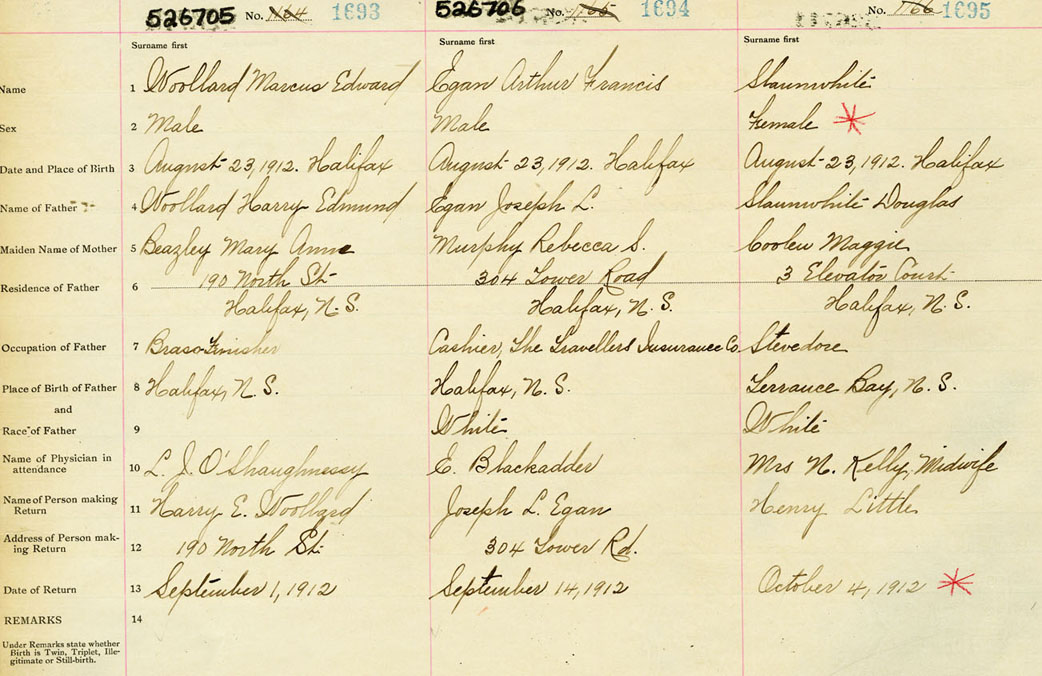 526705 No. 1164 1693 526706 No. 1165 1694 No. 1166 1695
Surname first Surname first Surname first
Name 1 Woollard Marcus Edward Egan Arthur Francis Slaunwhite
Sex 2 Male Male Female *
Date and Place of Birth 3 August 23, 1912. Halifax August 23, 1912. Halifax August 23, 1912. Halifax
Name of Father 4 Woollard Harry Edmund Egan Joseph L. Slaunwhite Douglas
Maiden Name of Mother 5 Beazley Mary Anne Murphy Rebecca S. Coolen Maggie
Residence of Father 6 190 North St 304 Lower Road 3 Elevator Court
Halifax, N. S. Halifax, N. S. Halifax, N. S.
Occupation of Father 7 Brass Finisher Cashier, The Travellers Insurance Co. Stevedore
Place of Birth of Father 8 Halifax, N. S. Halifax, N. S. Terrance Bay, N. S.
and
Race of Father 9 White White
Name of Physician in
attendance 10 L. J. O'Shaughnessy E. Blackadder Mrs N. Kelly, Midwife
Name of Person making
Return 11 Harry E. Woollard Joseph L. Egan Henry Little
Address of Person mak-
ing Return 12 190 North St. 304 Lower Rd.
Date of Return 13 September 1, 1912 September 14, 1912 October 4, 1912 *
REMARKS 14
Under Remarks state whether
Birth is Twin, Triplet, Ille-
gitimate or Still-birth.